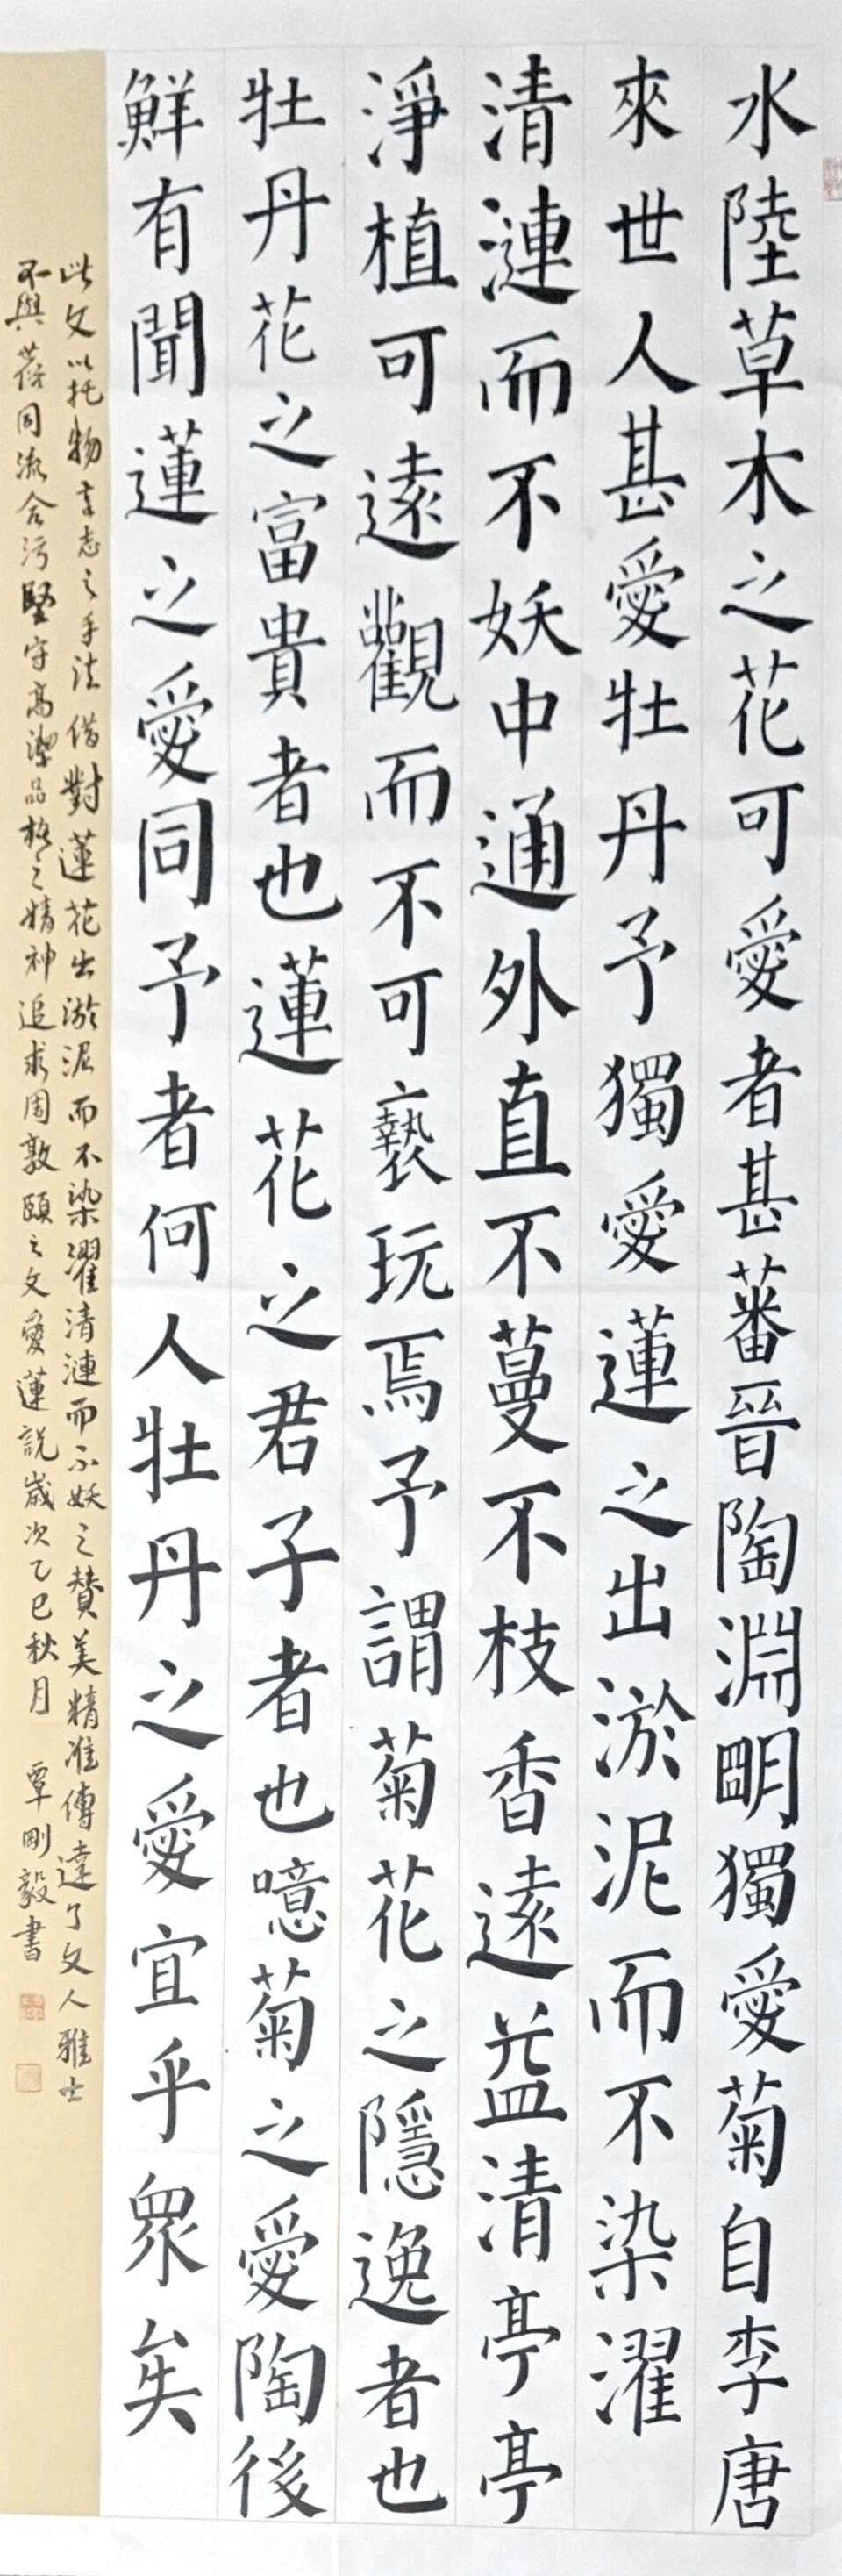 水陸草木之花可愛者甚蕃晉陶淵明獨愛菊自李唐
來世人甚愛牡丹予獨愛蓮之出淤泥而不染濯
清漣而不妖中通外直不蔓不枝香遠益清亭亭
淨植可遠觀而不可褻玩焉予謂菊花之隱逸者也
牡丹花之富貴者也蓮花之君子者也噫菊之愛陶後
鮮有聞蓮之愛同予者何人牡丹之愛宜乎眾矣
此文以托物言志之手法借對蓮花出淤泥而不染濯清漣而不妖之贊美精准傳達了文人雅士
不與同流合污堅守高潔品格之精神追求周敦頤之文愛蓮說歲次乙巳秋月 覃剛毅書